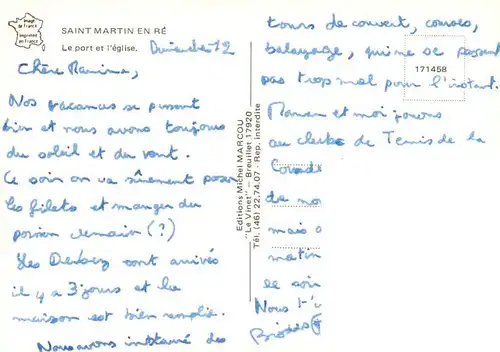 Image de France
Imprimé en France
SAINT MARTIN EN RÉ
Le port et l'église.
Dimanche 12
Chère Mamina,
Nos vacances se passent
bien et nous avons toujours
du soleil et du vent.
Ce soir on va sûrement poser
les filets et manger du
poisson demain (?)
Les Derbez sont arrivés
il y a 3 jours et la
maison est bien remplie.
Nous avons instauré des
Editions Michel MARCOU
"Le Vinet" - Breuillet 17920
Tél. (46) 22.74.07 - Rep. interdite
171458
tours de couvert, courses,
balayage, qui ne se passent
pas trop mal pour l'instant.
Maman et moi jouons
au club de Tennis de la
Couard
de no
mais o
matin
le soir
Nous t'